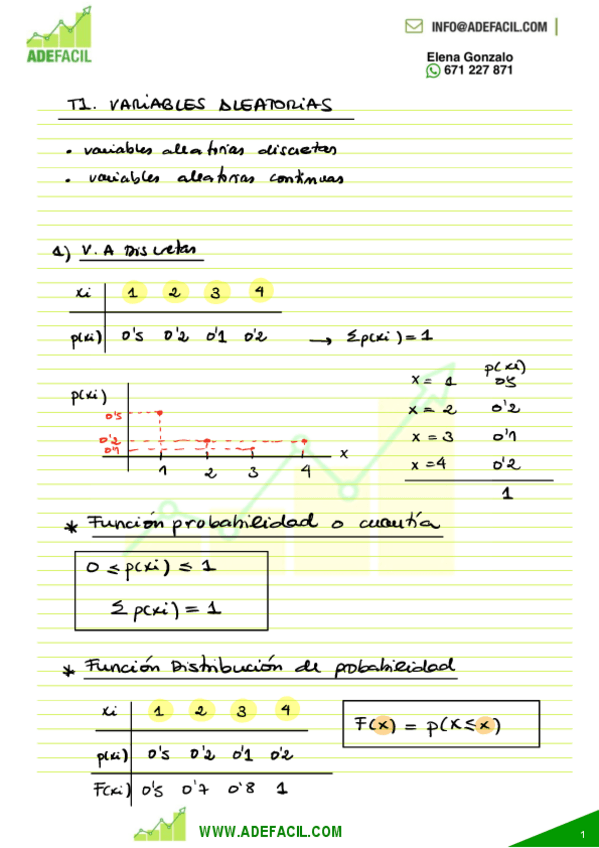 INFO@ADEFACIL.COM
ADEFACIL
Elena Gonzalo
671 227 871
T1. VARIABLES ALEATORIAS
• variables aleatorias discretas
• variables aleatorias continuas
1) V.A Discretas
xi 1 2 3 4
p(xi) 0'5 0'2 0'1 0'2 → Σp(xi) = 1
p(xi)
x = 1 0'5
x = 2 0'2
x = 3 0'1
x = 4 0'2
1
p(xi)
0'5
0'2
0'1
x
1 2 3 4
* Función probabilidad o cuantía
0 ≤ p(xi) ≤ 1
Σ p(xi) = 1
* Función Distribución de probabilidad
xi 1 2 3 4
p(xi) 0'5 0'2 0'1 0'2
F(xi) 0'5 0'7 0'8 1
F(x) = p(X ≤ x)
WWW.ADEFACIL.COM
1